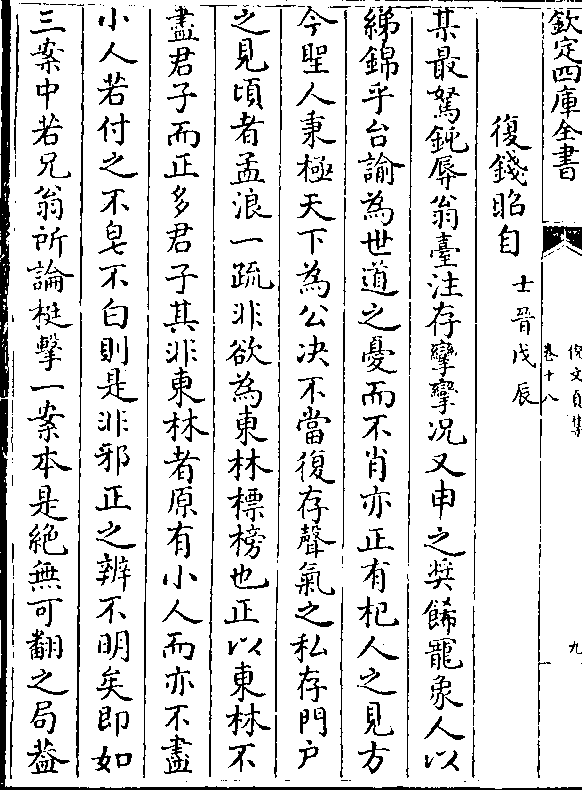 欽定四庫全書
倪文貞集
卷十八
九
復錢昭自士晉戊辰
某最駑鈍辱翁臺注存孿孿况又申之奬餙寵象人以
綈錦乎台諭為世道之憂而不肖亦正有杞人之見方
今聖人秉極天下為公决不當復存聲氣之私存門户
之見頃者孟浪一疏非欲為東林標榜也正以東林不
盡君子而正多君子其非東林者原有小人而亦不盡
小人若付之不皂不白則是非邪正之辨不明矣即如
三案中若兄翁所論梃擊一案本是絶無可翻之局葢